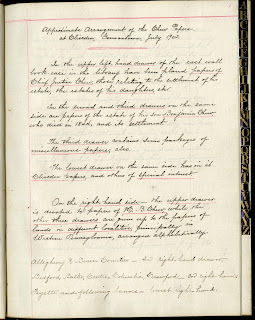 Approximate Arrangement of the Chew Papers
at Cliveden, Germantown, July 1902
In the upper left hand drawer of the east wall
book case in the library have been placed papers of
Chief Justice Chew, those relating to the settlement of his
estate, the estates of his daughters, etc
In the second and third drawers on the same
side are papers of the estate of his son Benjamin Chew,
who died in 1844, and its settlement.
The third drawer contains some packages of
miscellaneous papers, also.
The lowest drawer on the same side has in it
Cliveden papers, and others of special interest.
On the right hand side the upper drawer
is devoted to papers of Mr. B. Chew, while the
other three drawers are given up to the papers of
lands in different localities, principally in
Western Pennsylvania, arranged alphabetically.
Allegheny & Beaver Counties in 2d right hand drawer
Bedford, Counties Columbia, Crawford in right hand
Fayette and following lowest right hand.